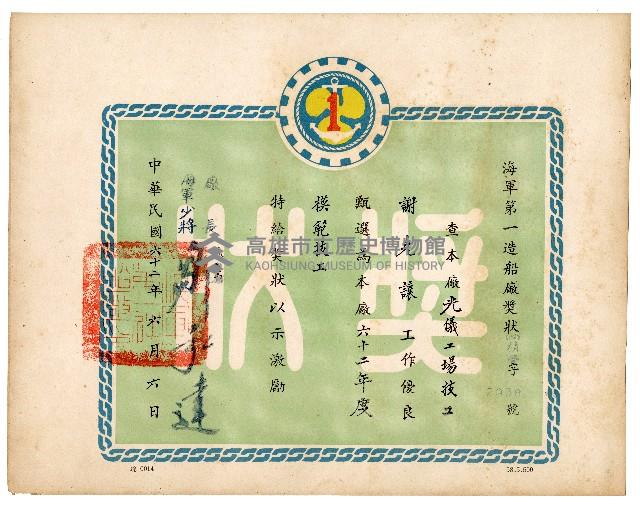 1
海軍第一造船廠獎狀
字
號
查本廠光儀工場技工
謝 讓 工作優良
甄選為本廠六十二年度
模範技工
特給獎狀以示激勵
廠長
海軍少將
中華民國六十二年六月六日
獎狀
高雄市立歷史博物館
KAOHSIUNG MUSEUM OF HISTORY
0014
58.5.600